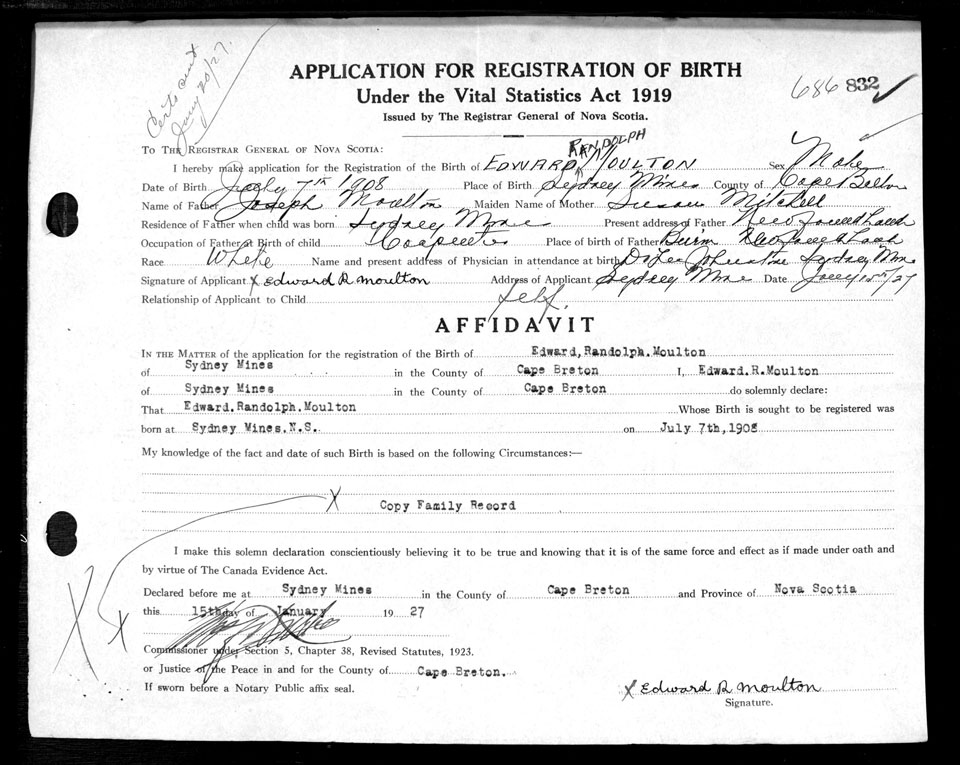 Certs sent
Jany 20/27.
APPLICATION FOR REGISTRATION OF BIRTH
Under the Vital Statistics Act 1919
Issued by The Registrar General of Nova Scotia.
686 832
To The Registrar General of Nova Scotia:
RANDOLPH
I hereby make application for the Registration of the Birth of EDWARD MOULTON Sex Male
Date of Birth July 7th 1908 Place of Birth Sydney Mines County of Cape Breton
Name of Father Joseph Moulton Maiden Name of Mother Susan Mitchell
Residence of Father when child was born Sydney Mines Present address of Father Newfoundland
Occupation of Father at Birth of child Carpenter Place of birth of Father Burin Newfoundland
Race White Name and present address of Physician in attendance at birth Dr Johnstone Sydney Mines
Signature of Applicant X Edward R Moulton Address of Applicant Sydney Mines Date Jany 15th/27
Relationship of Applicant to Child Self.
AFFIDAVIT
In the Matter of the application for the registration of the Birth of Edward,Randolph.Moulton
of Sydney Mines in the County of Cape Breton I, Edward.R.Moulton
of Sydney Mines in the County of Cape Breton do solemnly declare:
That Edward.Randolph.Moulton Whose Birth is sought to be registered was
born at Sydney Mines.N.S. on July 7th,1908
My knowledge of the fact and date of such Birth is based on the following Circumstances:—
X Copy Family Record
I make this solemn declaration conscientiously believing it to be true and knowing that it is of the same force and effect as if made under oath and
by virtue of The Canada Evidence Act.
Declared before me at Sydney Mines in the County of Cape Breton and Province of Nova Scotia
this 15th day of January 19 27
X X
Commissioner under Section 5, Chapter 38, Revised Statutes, 1923.
or Justice of the Peace in and for the County of Cape Breton.
If sworn before a Notary Public affix seal.
X Edward R Moulton
Signature.